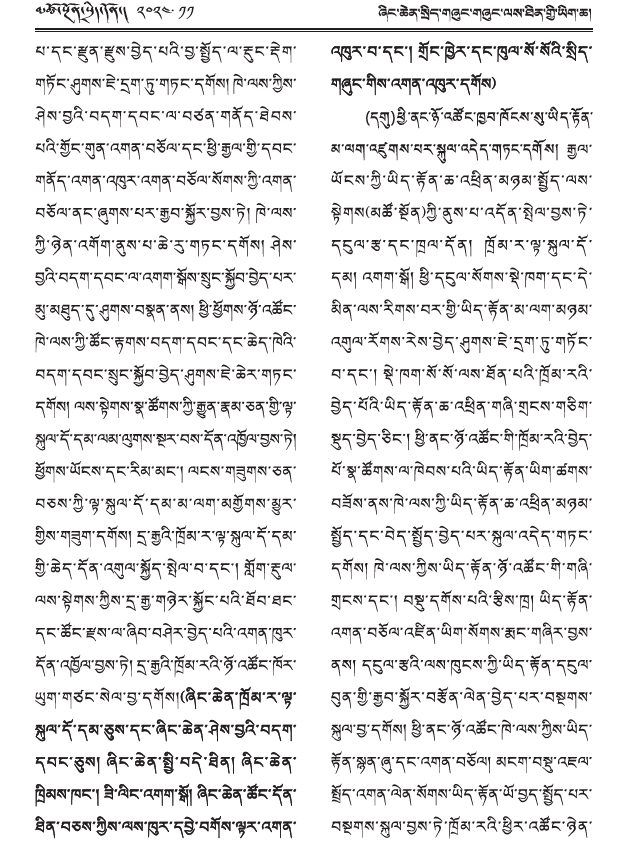 ༢༠༢༤.༡༡
ཞིང་ཆེན་སྲིད་གཞུང་གཞུང་ལས་ཐིན་གྱི་ཡིག་ཆ།
པ་དང་རྫུན་རྫུས་བྱེད་པའི་བྱ་སྤྱོད་ལ་རྡུང་རྡེག་
གཏོང་ཤུགས་ཇེ་དྲག་ཏུ་གཏང་དགོས། ཁེ་ལས་ཀྱིས་
ཤེས་བྱའི་བདག་དབང་ལ་བཙན་གནོད་ཐེབས་
པའི་གྱོང་གུན་འགན་བཅོལ་དང་ཕྱི་རྒྱལ་གྱི་དབང་
གནོད་འགན་འཁུར་འགན་བཅོལ་སོགས་ཀྱི་འགན་
བཅོལ་ནང་ཞུགས་པར་རྒྱབ་སྐྱོར་བྱས་ཏེ། ཁེ་ལས་
ཀྱི་ཉེན་འགོག་ནུས་པ་ཆེ་རུ་གཏང་དགོས། ཤེས་
བྱའི་བདག་དབང་ལ་འགག་སྒོས་སྲུང་སྐྱོབ་བྱེད་པར་
མུ་མཐུད་དུ་ཤུགས་བསྣན་ནས། ཕྱི་ཕྱོགས་ཉོ་འཚོང་
ཁེ་ལས་ཀྱི་ཚོང་རྟགས་བདག་དབང་དང་ཆེད་ཁེའི་
བདག་དབང་སྲུང་སྐྱོབ་བྱེད་ཤུགས་ཇེ་ཆེར་གཏང་
དགོས། ལས་སྟེགས་སྣ་ཚོགས་ཀྱི་རྒྱུན་རྣམ་ཅན་གྱི་ལྟ་
སྐུལ་དོ་དམ་ལམ་ལུགས་སྔར་བས་དོན་འཁྱོལ་བྱས་ཏེ།
ཕྱོགས་ཡོངས་དང་རིམ་མང་། ལངས་གཟུགས་ཅན་
བཅས་ཀྱི་ལྟ་སྐུལ་དོ་དམ་མ་ལག་མགྱོགས་མྱུར་
གྱིས་གཟུག་དགོས། དྲ་རྒྱའི་ཁྲོམ་ར་ལྟ་སྐུལ་དོ་དམ་
གྱི་ཆེད་དོན་འགུལ་སྐྱོད་སྤེལ་བ་དང་། གློག་རྡུལ་
ལས་སྟེགས་ཀྱིས་དྲ་རྒྱ་གཉེར་སྐྱོང་པའི་ཐོབ་ཐང་
དང་ཚོང་རྫས་ལ་ཞིབ་བཤེར་བྱེད་པའི་འགན་ཁུར་
དོན་འཁྱོལ་བྱས་ཏེ། དྲ་རྒྱའི་ཁྲོམ་རའི་ཉོ་འཚོང་ཁོར་
ཡུག་གཙང་སེལ་བྱ་དགོས།(ཞིང་ཆེན་ཁྲོམ་ར་ལྟ་
སྐུལ་དོ་དམ་ཅུས་དང་ཞིང་ཆེན་ཤེས་བྱའི་བདག་
དབང་ཅུས། ཞིང་ཆེན་སྤྱི་བདེ་ཐིན། ཞིང་ཆེན་
ཁྲིམས་ཁང་། ཟི་ལིང་འགག་སྒོ། ཞིང་ཆེན་ཚོང་དོན་
ཐིན་བཅས་ཀྱིས་ལས་ཁུར་དབྱེ་བགོས་ལྟར་འགན་
འཁུར་བ་དང་། གྲོང་ཁྱེར་དང་ཁུལ་སོ་སོའི་སྲིད་
གཞུང་གིས་འགན་འཁུར་དགོས)
(དགུ)ཕྱི་ནང་ཉོ་འཚོང་ཁྱབ་ཁོངས་སུ་ཡིད་རྟོན་
མ་ལག་འཛུགས་པར་སྐུལ་འདེད་གཏང་དགོས། རྒྱལ་
ཡོངས་ཀྱི་ཡིད་རྟོན་ཆ་འཕྲིན་མཉམ་སྤྱོད་ལས་
སྟེགས(མཚོ་སྔོན)ཀྱི་ནུས་པ་འདོན་སྤེལ་བྱས་ཏེ་
དངུལ་རྩ་དང་ཁྲལ་དོན། ཁྲོམ་ར་ལྟ་སྐུལ་དོ་
དམ། འགག་སྒོ། ཕྱི་དངུལ་སོགས་སྡེ་ཁག་དང་དེ་
མིན་ལས་རིགས་བར་གྱི་ཡིད་རྟོན་མ་ལག་མཉམ་
འགུལ་རོགས་རེས་བྱེད་ཤུགས་ཇེ་དྲག་ཏུ་གཏོང་
བ་དང་། སྡེ་ཁག་སོ་སོ་ལས་ཐོན་པའི་ཁྲོམ་རའི་
བྱེད་པོའི་ཡིད་རྟོན་ཆ་འཕྲིན་གཞི་གྲངས་གཅིག་
སྡུད་བྱེད་ཅིང་། ཕྱི་ནང་ཉོ་འཚོང་གི་ཁྲོམ་རའི་བྱེད་
པོ་སྣ་ཚོགས་ལ་ཁེབས་པའི་ཡིད་རྟོན་ཡིག་ཚགས་
བཟོས་ནས་ཁེ་ལས་ཀྱི་ཡིད་རྟོན་ཆ་འཕྲིན་མཉམ་
སྤྱོད་དང་བེད་སྤྱོད་བྱེད་པར་སྐུལ་འདེད་གཏང་
དགོས། ཁེ་ལས་ཀྱིས་ཡིད་རྟོན་ཉོ་འཚོང་གི་གཞི་
གྲངས་དང་། བསྡུ་དགོས་པའི་རྩིས་ཁྲ། ཡིད་རྟོན་
འགན་བཅོལ་འཛིན་ཡིག་སོགས་རྨང་གཞིར་བྱས་
ནས། དངུལ་རྩའི་ལས་ཁུངས་ཀྱི་ཡིད་རྟོན་དངུལ་
བུན་གྱི་རྒྱབ་སྐྱོར་བརྩོན་ལེན་བྱེད་པར་བསྔགས་
སྐུལ་བྱ་དགོས། ཕྱི་ནང་ཉོ་འཚོང་ཁེ་ལས་ཀྱིས་ཡིད་
རྟོན་སྙན་ཞུ་དང་འགན་བཅོལ། མངག་བསྡུ་འཇལ་
སྤྲོད་འགན་ལེན་སོགས་ཡིད་རྟོན་ཡོ་བྱད་སྤྱོད་པར་
བསྔགས་སྐུལ་བྱས་ཏེ་ཁྲོམ་རའི་ཕྱིར་འཚོང་ཉེན་